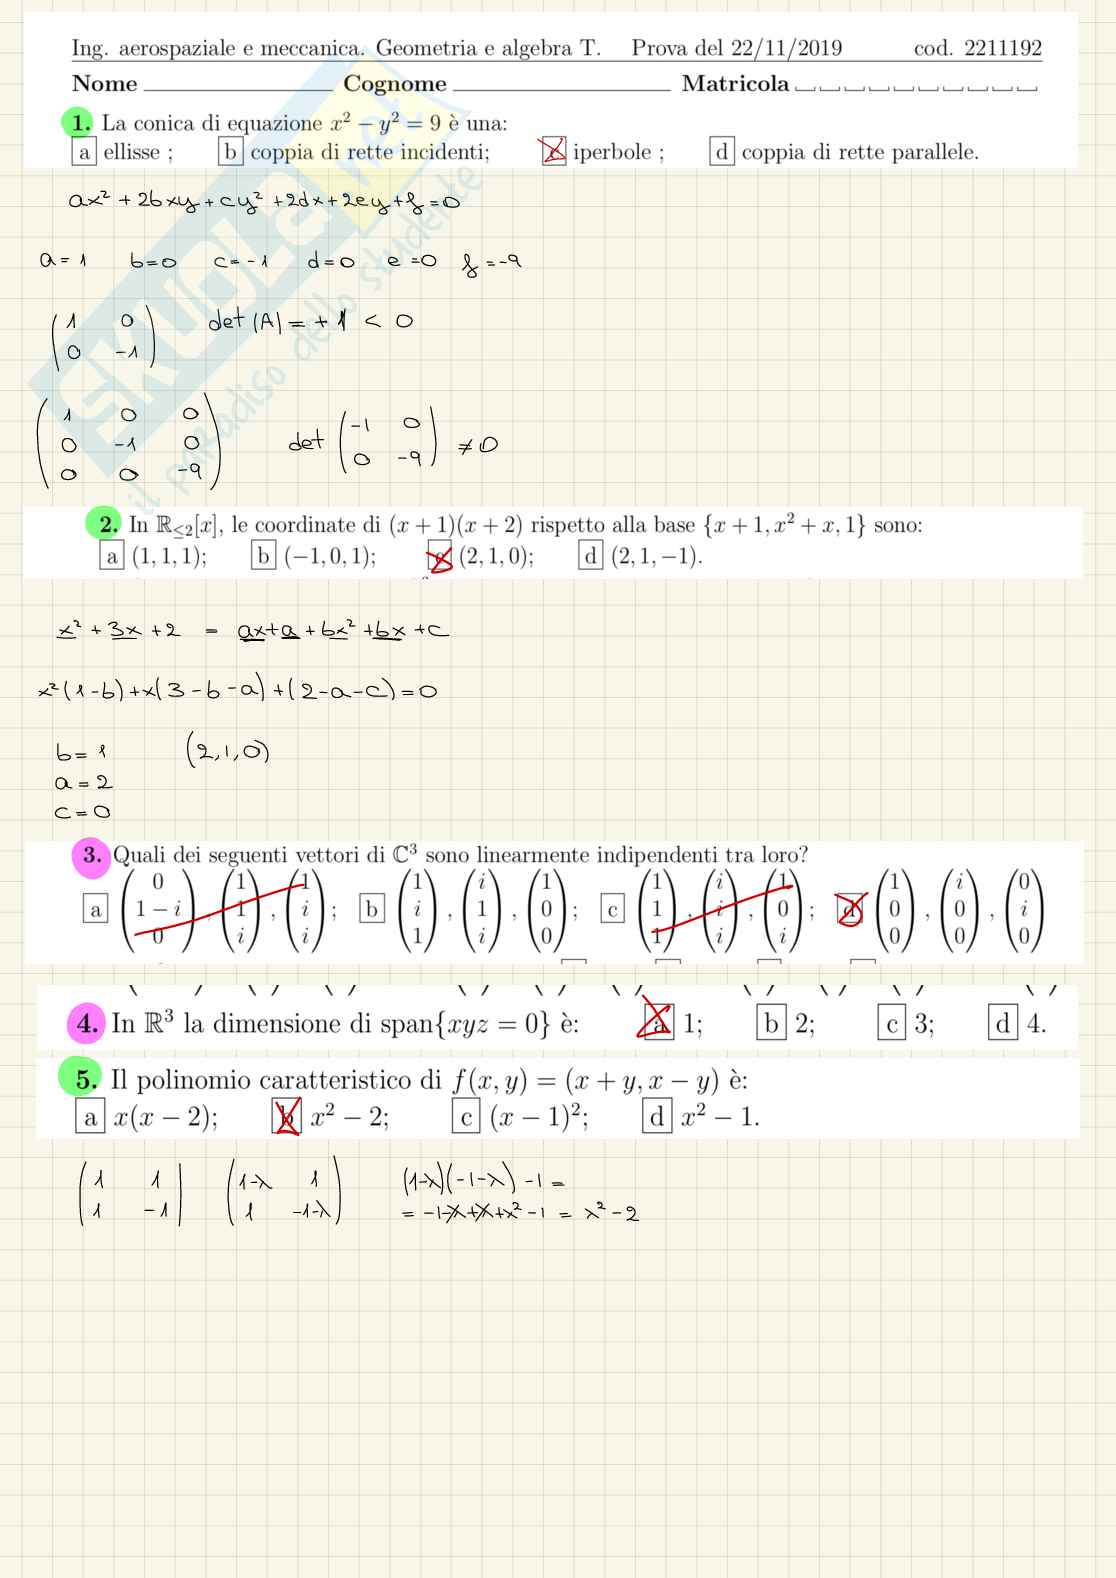 Ing. aerospaziale e meccanica. Geometria e algebra T. Prova del 22/11/2019 cod. 2211192
Nome Cognome Matricola
1. La conica di equazione x² − y² = 9 è una:
a ellisse ; b coppia di rette incidenti; c iperbole ; d coppia di rette parallele.
ax² + 2bxy + cy² + 2dx + 2ey + f = 0
a = 1 b = 0 c = -1 d = 0 e = 0 f = -9
(1 0) det(A) = + 1 < 0
(0 -1)
(1 0 0)
(0 -1 0) det (-1 0) ≠ 0
(0 0 -9) (0 -9)
SKUOLA.net
il paradiso dello studente
2. In ℝ≤2[x], le coordinate di (x + 1)(x + 2) rispetto alla base {x + 1, x² + x, 1} sono:
a (1, 1, 1); b (−1, 0, 1); c (2, 1, 0); d (2, 1, −1).
x² + 3x + 2 = ax + a + bx² + bx + c
x²(1 - b) + x(3 - b - a) + (2 - a - c) = 0
b = 1 (2, 1, 0)
a = 2
c = 0
3. Quali dei seguenti vettori di ℂ³ sono linearmente indipendenti tra loro?
a (0 1 − i 0) (1 1 i), (1 i i); b (1 i 1), (i 1 i), (1 0 0); c (1 1 1), (i i i), (1 0 i); d (1 0 0), (i 0 0), (0 i 0)
4. In ℝ³ la dimensione di span{xyz = 0} è: a 1; b 2; c 3; d 4.
5. Il polinomio caratteristico di f(x, y) = (x + y, x − y) è:
a x(x − 2); b x² − 2; c (x − 1)²; d x² − 1.
(1 1) (1-λ 1) (1-λ)(-1-λ) - 1 =
(1 -1) (1 -1-λ) = -1-λ+λ+λ² - 1 = λ² - 2